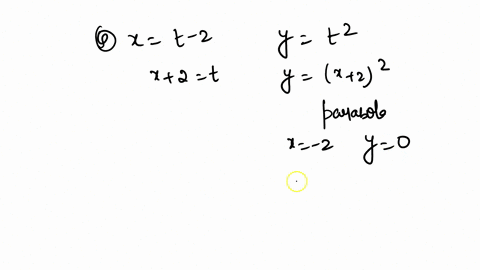 ⑥ x = t-2 y = t²
x+2 = t y = (x+2)²
parabola
x = -2 y = 0